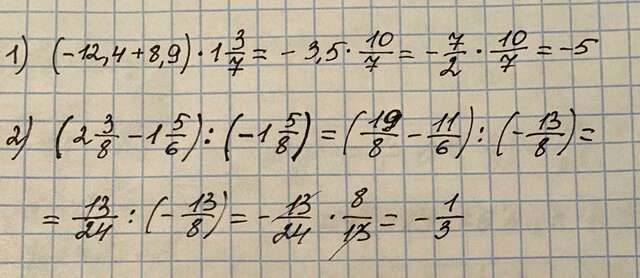 1) (-12,4+8,9)·1 3/7 = -3,5· 10/7 = - 7/2 · 10/7 = -5
2) (2 3/8 - 1 5/6) : (-1 5/8) = (19/8 - 11/6) : (- 13/8) =
= 13/24 : (- 13/8) = - 13/24 · 8/13 = - 1/3